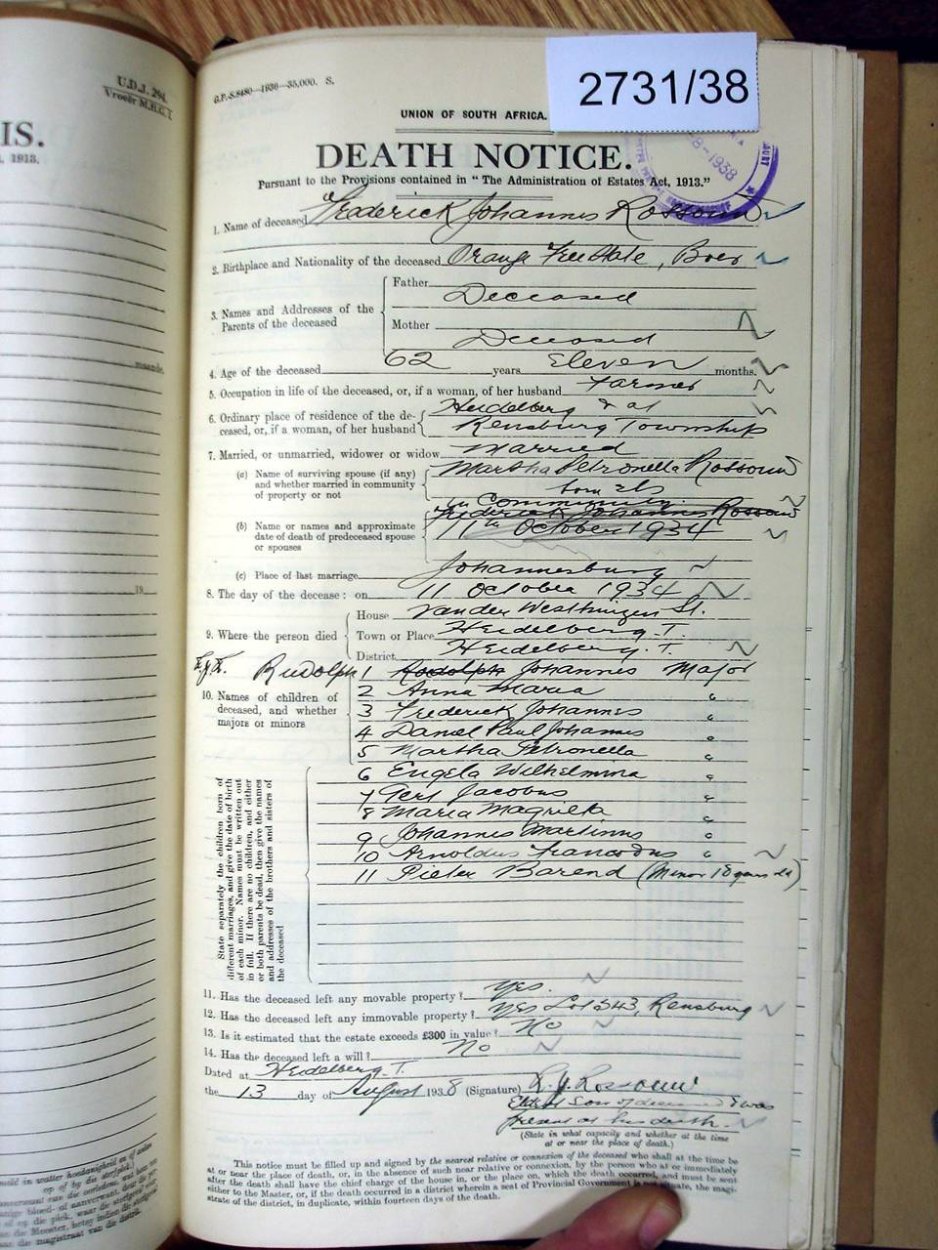 U.D.J. 294.
Vroeër M.H.G. 1
IS.
, 1913.
maande.
19
G.P.-S.8480—1936—35,000. S.
2731/38
UNION OF SOUTH AFRICA.
DEATH NOTICE.
8-1938
Pursuant to the Provisions contained in "The Administration of Estates Act, 1913."
1. Name of deceased Frederick Johannes Rossouw
2. Birthplace and Nationality of the deceased Orange Free State, Boer
3. Names and Addresses of the Parents of the deceased
Father
Deceased
Mother
Deceased
4. Age of the deceased 62 years Eleven months.
5. Occupation in life of the deceased, or, if a woman, of her husband Farmer
6. Ordinary place of residence of the de-
ceased, or, if a woman, of her husband
Heidelberg & at
Rensburg Township
7. Married, or unmarried, widower or widow Married
(a) Name of surviving spouse (if any)
and whether married in community
of property or not
Martha Petronella Rossouw
born Els
in Community.
(b) Name or names and approximate
date of death of predeceased spouse
or spouses
Frederick Johannes Rossouw
11th October 1934
(c) Place of last marriage Johannesburg
8. The day of the decease : on 11 October 1934
9. Where the person died
House van der Westhuizen St.
Town or Place Heidelberg. T.
District Heidelberg. T.
10. Names of children of
deceased, and whether
majors or minors
Rudolph 1 Rodolph Johannis Major
2 Anna Maria "
3 Frederick Johannis "
4 Daniel Paul Johannis "
5 Martha Petronella "
6 Engela Wilhelmina "
7 Gert Jacobus "
8 Maria Magrieta "
9 Johannis Martinus "
10 Arnoldus "
11 Pieter Barend (Minor 18 years old)
State separately the children born of
different marriages, and give the date of birth
of each minor. Names must be written out
in full. If there are no children, and either
or both parents be dead, then give the names
and addresses of the brothers and sisters of
the deceased
11. Has the deceased left any movable property? Yes.
12. Has the deceased left any immovable property? Yes Lot 543, Rensburg
13. Is it estimated that the estate exceeds £300 in value? No
14. Has the deceased left a will? No
Dated at Heidelberg. T.
the 13 day of August 1938 (Signature) R. J. Rossouw
Eldest Son of deceased & was
present at his death.
(State in what capacity and whether at the time
at or near the place of death.)
This notice must be filled up and signed by the nearest relative or connexion of the deceased who shall at the time be
at or near the place of death, or, in the absence of such near relative or connexion, by the person who at or immediately
after the death shall have the chief charge of the house in, or the place on, which the death occurred, and must be sent
either to the Master, or, if the death occurred in a district wherein a seat of Provincial Government is not situate, the magi-
strate of the district, in duplicate, within fourteen days of the death.